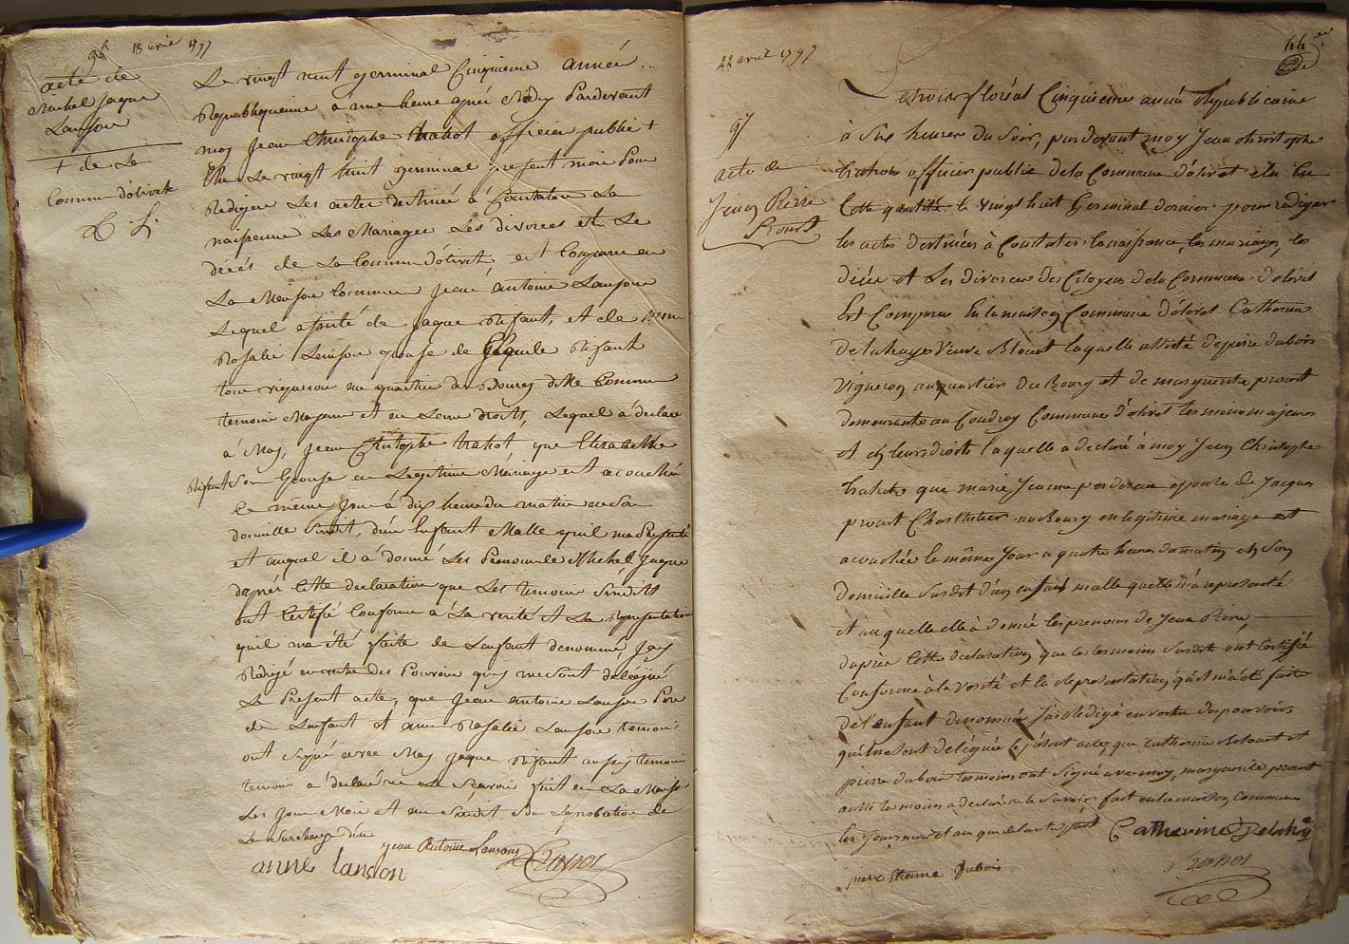 18 avril 1797
acte de
Michel Jaque
Lanson
+ de La
Commune d'olivet
Le vingt neuf germinal Cinquieme année
Republiquenne a une heure aprés Midy Pardevant
moy Jean Christophe trahot officier public +
Elu Le vingt huit germinal present mois Pour
Rediger Les actes destinée à Constater La
naissence Les Mariages Les divorces et Le
decés de La Commune d'olivet, est Comparu en
La Maison Commune Jean antoine Lanson
Lequel assisté de Jaque Rifaut, et de anne
Rosalie Lanson epouse de Rifaut
tous vigneron au quartier du Bourg dite Commune
temoin Majeur et en Leurs droits, Lequel a déclaré
à Moy, Jean Christophe trahot, que Elisabethe
Rifaut Son Epouse en Legitime Mariage est acouchée
Ce même Jour à dix heure du matin en Son
domicille Sudit, d'un Enfant Malle qu'il ma Presenté
et auquel il a donné Les Prenom de Michel Jaque
daprés Cette declaration que Les temoins Sudits
ont Certifié Conforme à La verité et La Representation
qu'il ma été faite de Lanfant denommé, Jay
Redigé en vertu des Pouvoirs qui me Sont délégué
Le Present acte, que Jean Antoine Lanson Pere
de Lanfant et anne Rosalie Lanson temoin
ont Signé avec Moy Jaque Rifaut aussy temoin
a déclaré ne Le Scavoir fait en La Maison
Les Jour Mois et an Susdit
jean Antoine Lanson
anne lanson
Trahot
22 avril 1797
44
97
acte de
Jean Pierre
Prout
Le trois floréal Cinquieme année Republicaine
à Six heures du Soir, pardevant moy Jean christophe
trahot officier public de la Commune d'olivet élu
le vingt huit Germinal dernier pour rediger
les actes destinées à Constater la naissance, les mariages, les
décée et Les divorces des Citoyens de la Commune d'olivet
Est Comparue En la maison Commune d'olivet Catherine
Delahaye veuve laquelle assisté de pierre dubois
Vigneron au quartier du Bourg et de marguerite prout
demeurante au Coudray Commune d'olivet temoins majeurs
et en leurs droits laquelle a declaré à moy Jean Christophe
trahot que marie Jeanne epouse de Jacques
prout au Bourg en legitime mariage est
acouchée le même Jour a quatre heures du matin en Son
domicille Sudit d'un enfant malle quelle m'a representé
et auquelle elle à donné les prenoms de Jean Pierre,
d'après Cette declaration que les temoins Sudits ont Certifié
Conforme à la verité et la representation qui m'a été faite
de l'enfant denommé J'ai redigé en vertu des pouvoirs
qui me sont delégués le présent acte que Catherine et
pierre dubois temoins ont Signé avec moy, marguerite prout
aussi temoin a declaré ne le Savoir fait en la maison Commune
les Jour mois et an que d'autre part
Catherine Delahaye
pierre Etienne Dubois
Trahot